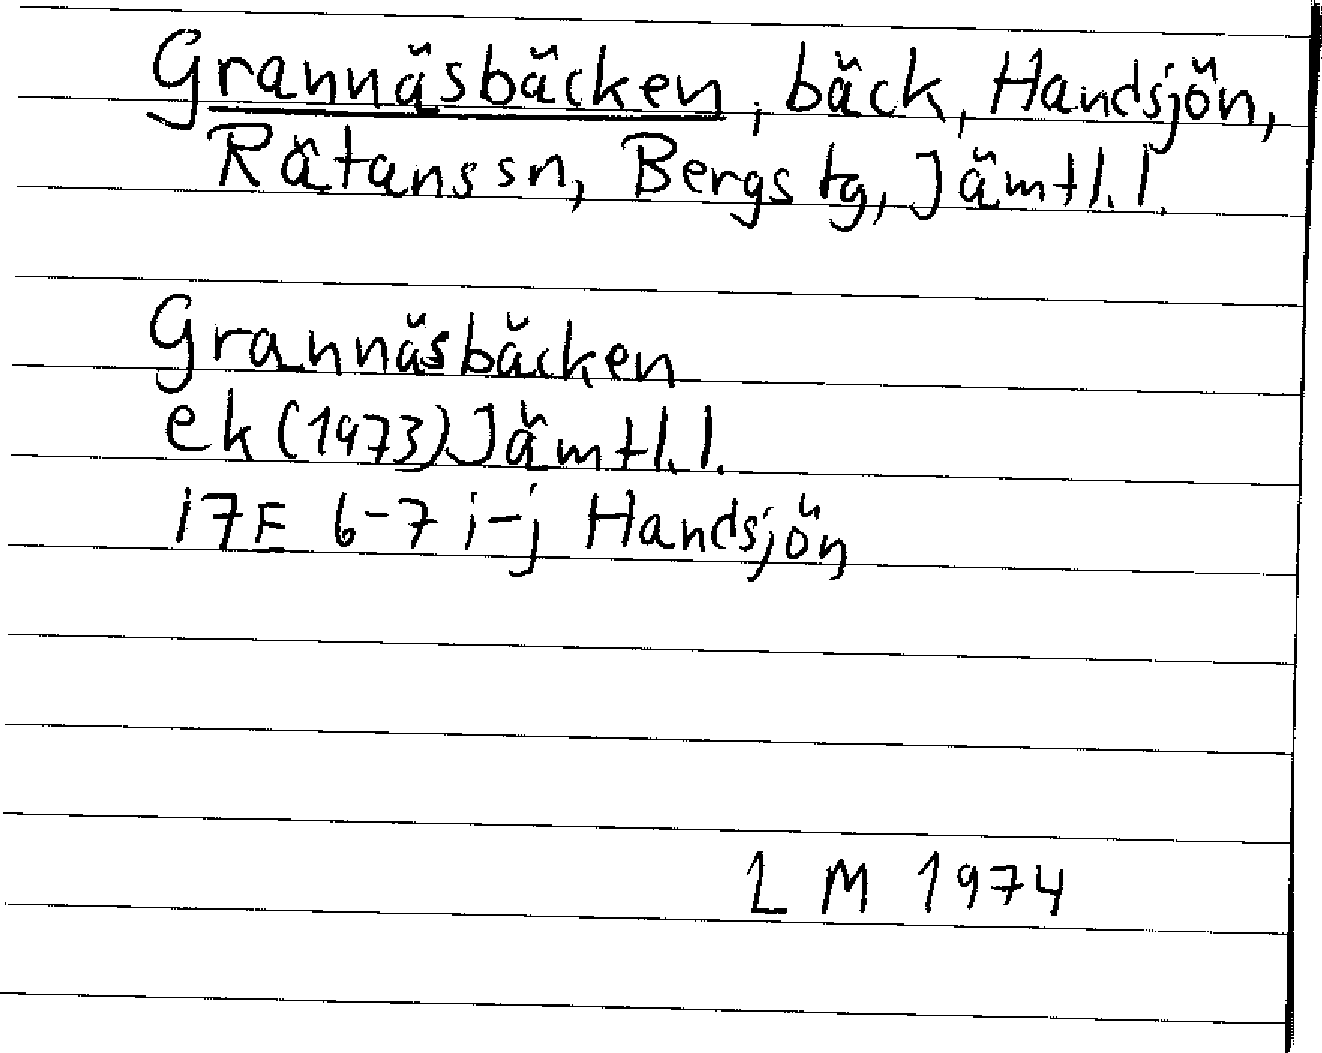 Grannäsbäcken, bäck, Handsjön,
Rätans sn, Bergs tg, Jämtl. l.
Grannäsbäcken
ek (1973) Jämtl. l.
17F 6-7 i-j Handsjön
L M 1974